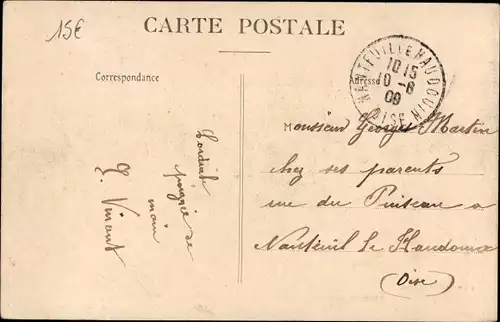 15€
CARTE POSTALE
Correspondance
Adresse
NANTEUIL LE HAUDOUIN
10 15
10 -8
09
OISE
Monsieur Georges Martin
chez ses parents
rue du Puiseau a
Nanteuil le Haudouin
(Oise)
Cordiale
poignée de
main
L. Vincent